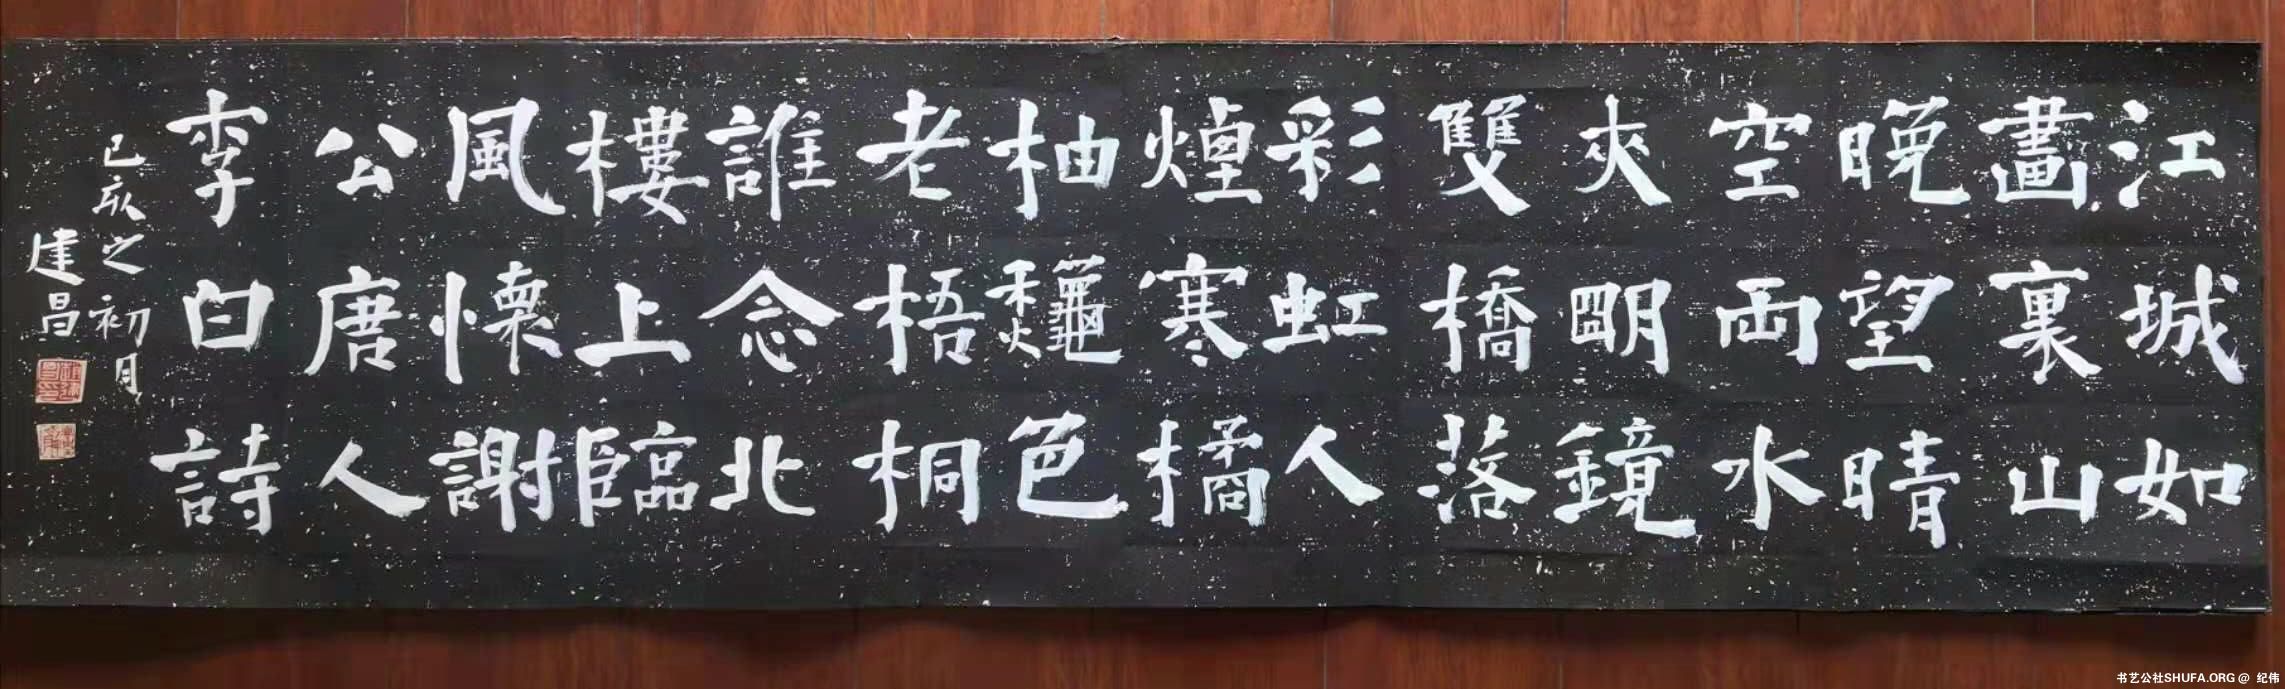 江城如
畫裏山
晚望晴
空両水
夾朙鏡
雙橋落
彩虹人
煙寒橘
柚龝色
老梧桐
誰念北
樓上臨
風懷謝
公唐人
李白詩
己亥之初月
建昌
书艺公社SHUFA.ORG @ 纪伟